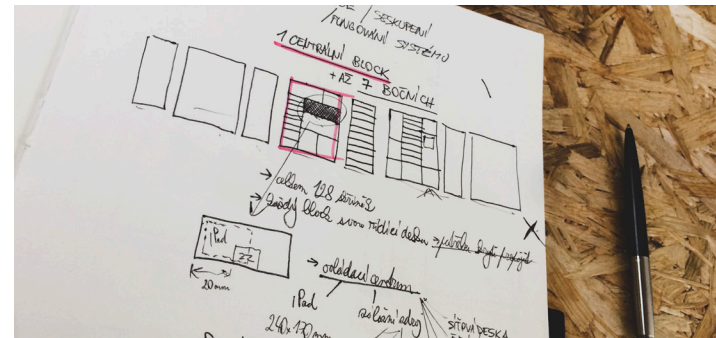 / SESKUPENÍ
FUNGOVÁNÍ SYSTÉMU
1 CENTRÁLNÍ BLOCK
+ AŽ 7 BOČNÍCH
→ celkem 128 skříněk
→ každý block svou řídící desku →
iPad
20mm
→ ovládací centrum
iPad
záložní zdroj
240x170mm
SÍŤOVÁ DESKA